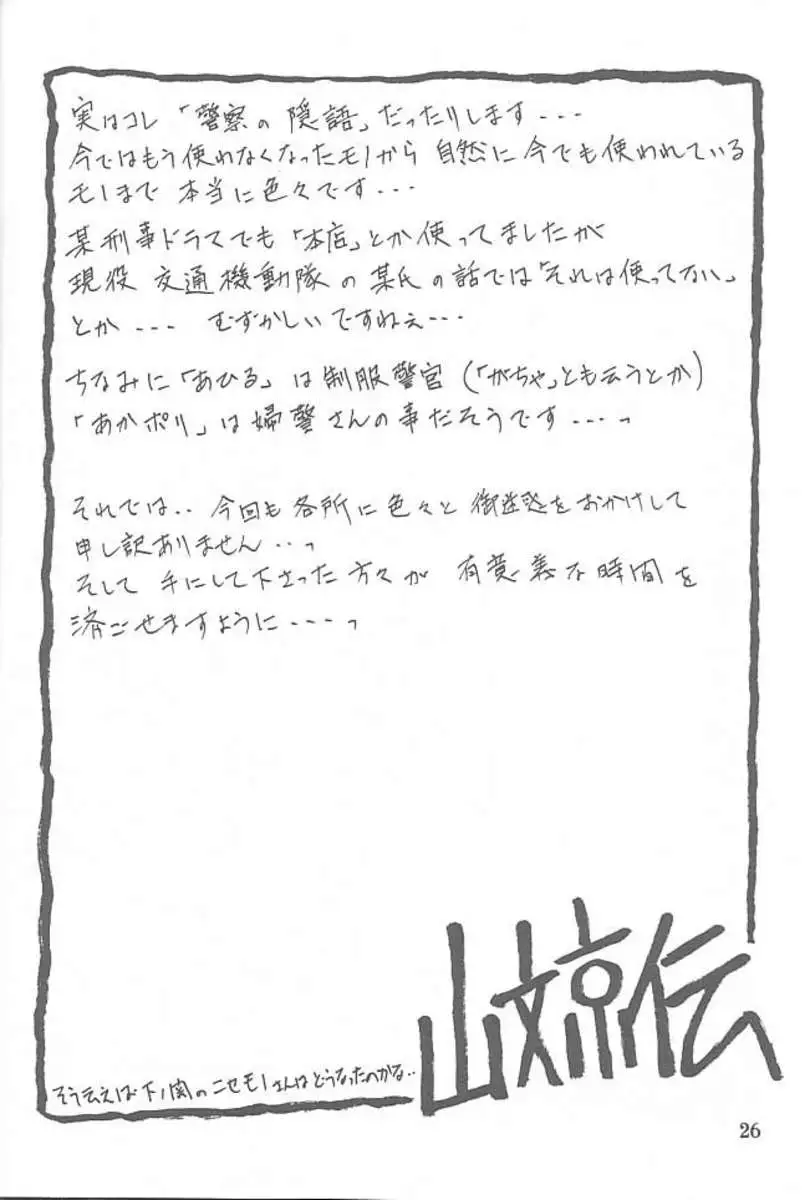 実はコレ「警察の隠語」だったりします---
今ではもう使われなくなったモノから 自然に今でも使われている
モノまで 本当に色々です---
某刑事ドラマでも「本店」とか使ってましたが
現役 交通機動隊の某氏の話では「それは使ってない」
とか--- むずかしいですねぇ---
ちなみに「あひる」は制服警官(「がちゃ」とも云うとか)
「あかポリ」は婦警さんの事だそうです---っ
それでは‥今回も各所に色々と御迷惑をおかけして
申し訳ありません‥っ
そして 手にして下さった方々が 有意義な時間を
済ごせますように---っ
山文京伝
そう云えば下ノ関のニセモノさんはどうなったのかな‥
26